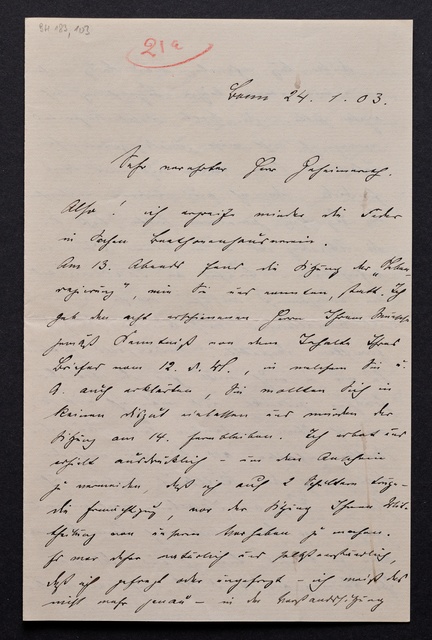 BH 183, 103
21a
Bonn 24. 1. 03.
Sehr verehrter Herr Geheimrath.
Also! ich ergreife wieder die Feder
in Sachen Beethovenhausverein.
Am 13. Abends fand die Sitzung der „Neben
regierung", wie Sie uns nannten, statt. Ich
gab den acht erschienenen Herrn Ihrem Wunsche
gemäß Kenntniß von dem Inhalte Ihres
Briefes vom 12. d. Mts., in welchem Sie u.
A. auch erklärten, Sie wollten Sich in
keinen disput einlassen und würden der
Sitzung am 14. fernbleiben. Ich erbat und
erhielt ausdrücklich - um den Anschein
zu vermeiden, daß ich auf 2 Schultern trage -
die Ermächtigung, vor der Sitzung Ihnen Mit-
theilung von unserm Vorhaben zu machen.
Es war daher natürlich und selbstverständlich,
daß ich gefragt oder ungefragt - ich weiß das
nicht mehr genau - in der Vorstandssitzung